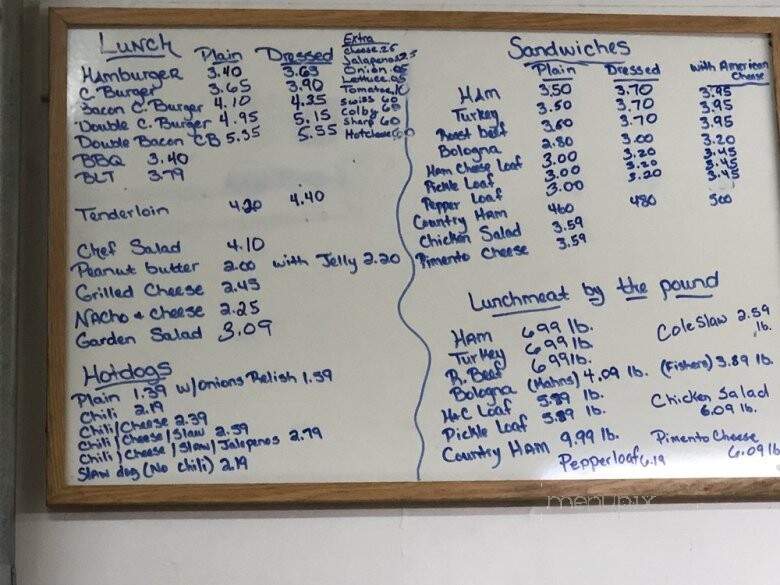 Lunch Plain Dressed
Hamburger 3.40 3.65
C. Burger 3.65 3.90
Bacon C. Burger 4.10 4.35
Double C. Burger 4.95 5.15
Double Bacon CB 5.35 5.55
BBQ 3.40
BLT 3.79
Tenderloin 4.20 4.40
Chef Salad 4.10
Peanut butter 2.00 with Jelly 2.20
Grilled Cheese 2.45
Nacho & Cheese 2.25
Garden Salad 3.09
Extra
Cheese .25
Jalapenos .25
Onion .05
Lettuce .05
Tomatoe .10
Swiss 60
Colby 60
Sharp 60
Hotcheese 60
Hotdogs
Plain 1.39 w/onions Relish 1.59
Chili 2.19
Chili/Cheese 2.39
Chili/Cheese/Slaw 2.59
Chili/Cheese/Slaw/Jalapenos 2.79
Slaw dog (No chili) 2.19
Sandwiches
Plain Dressed with American Cheese
Ham 3.50 3.70 3.95
Turkey 3.50 3.70 3.95
Roast beef 3.60 3.70 3.95
Bologna 2.80 3.00 3.20
Ham Cheese Loaf 3.00 3.20 3.45
Pickle Loaf 3.00 3.20 3.45
Pepper Loaf 3.00 3.20 3.45
Country Ham 460 480 500
Chicken Salad 3.59
Pimento Cheese 3.59
Lunchmeat by the pound
Ham 6.99 lb.
Turkey 6.99 lb.
R. Beef 6.99 lb.
Bologna (Mahns) 4.09 lb. (Fishers) 3.89 lb.
H&C Loaf 5.89 lb.
Pickle Loaf 5.89 lb.
Country Ham 9.99 lb.
Pepperloaf 6.19
Coleslaw 2.59 lb.
Chicken Salad 6.09 lb.
Pimento Cheese 6.09 lb
menupix